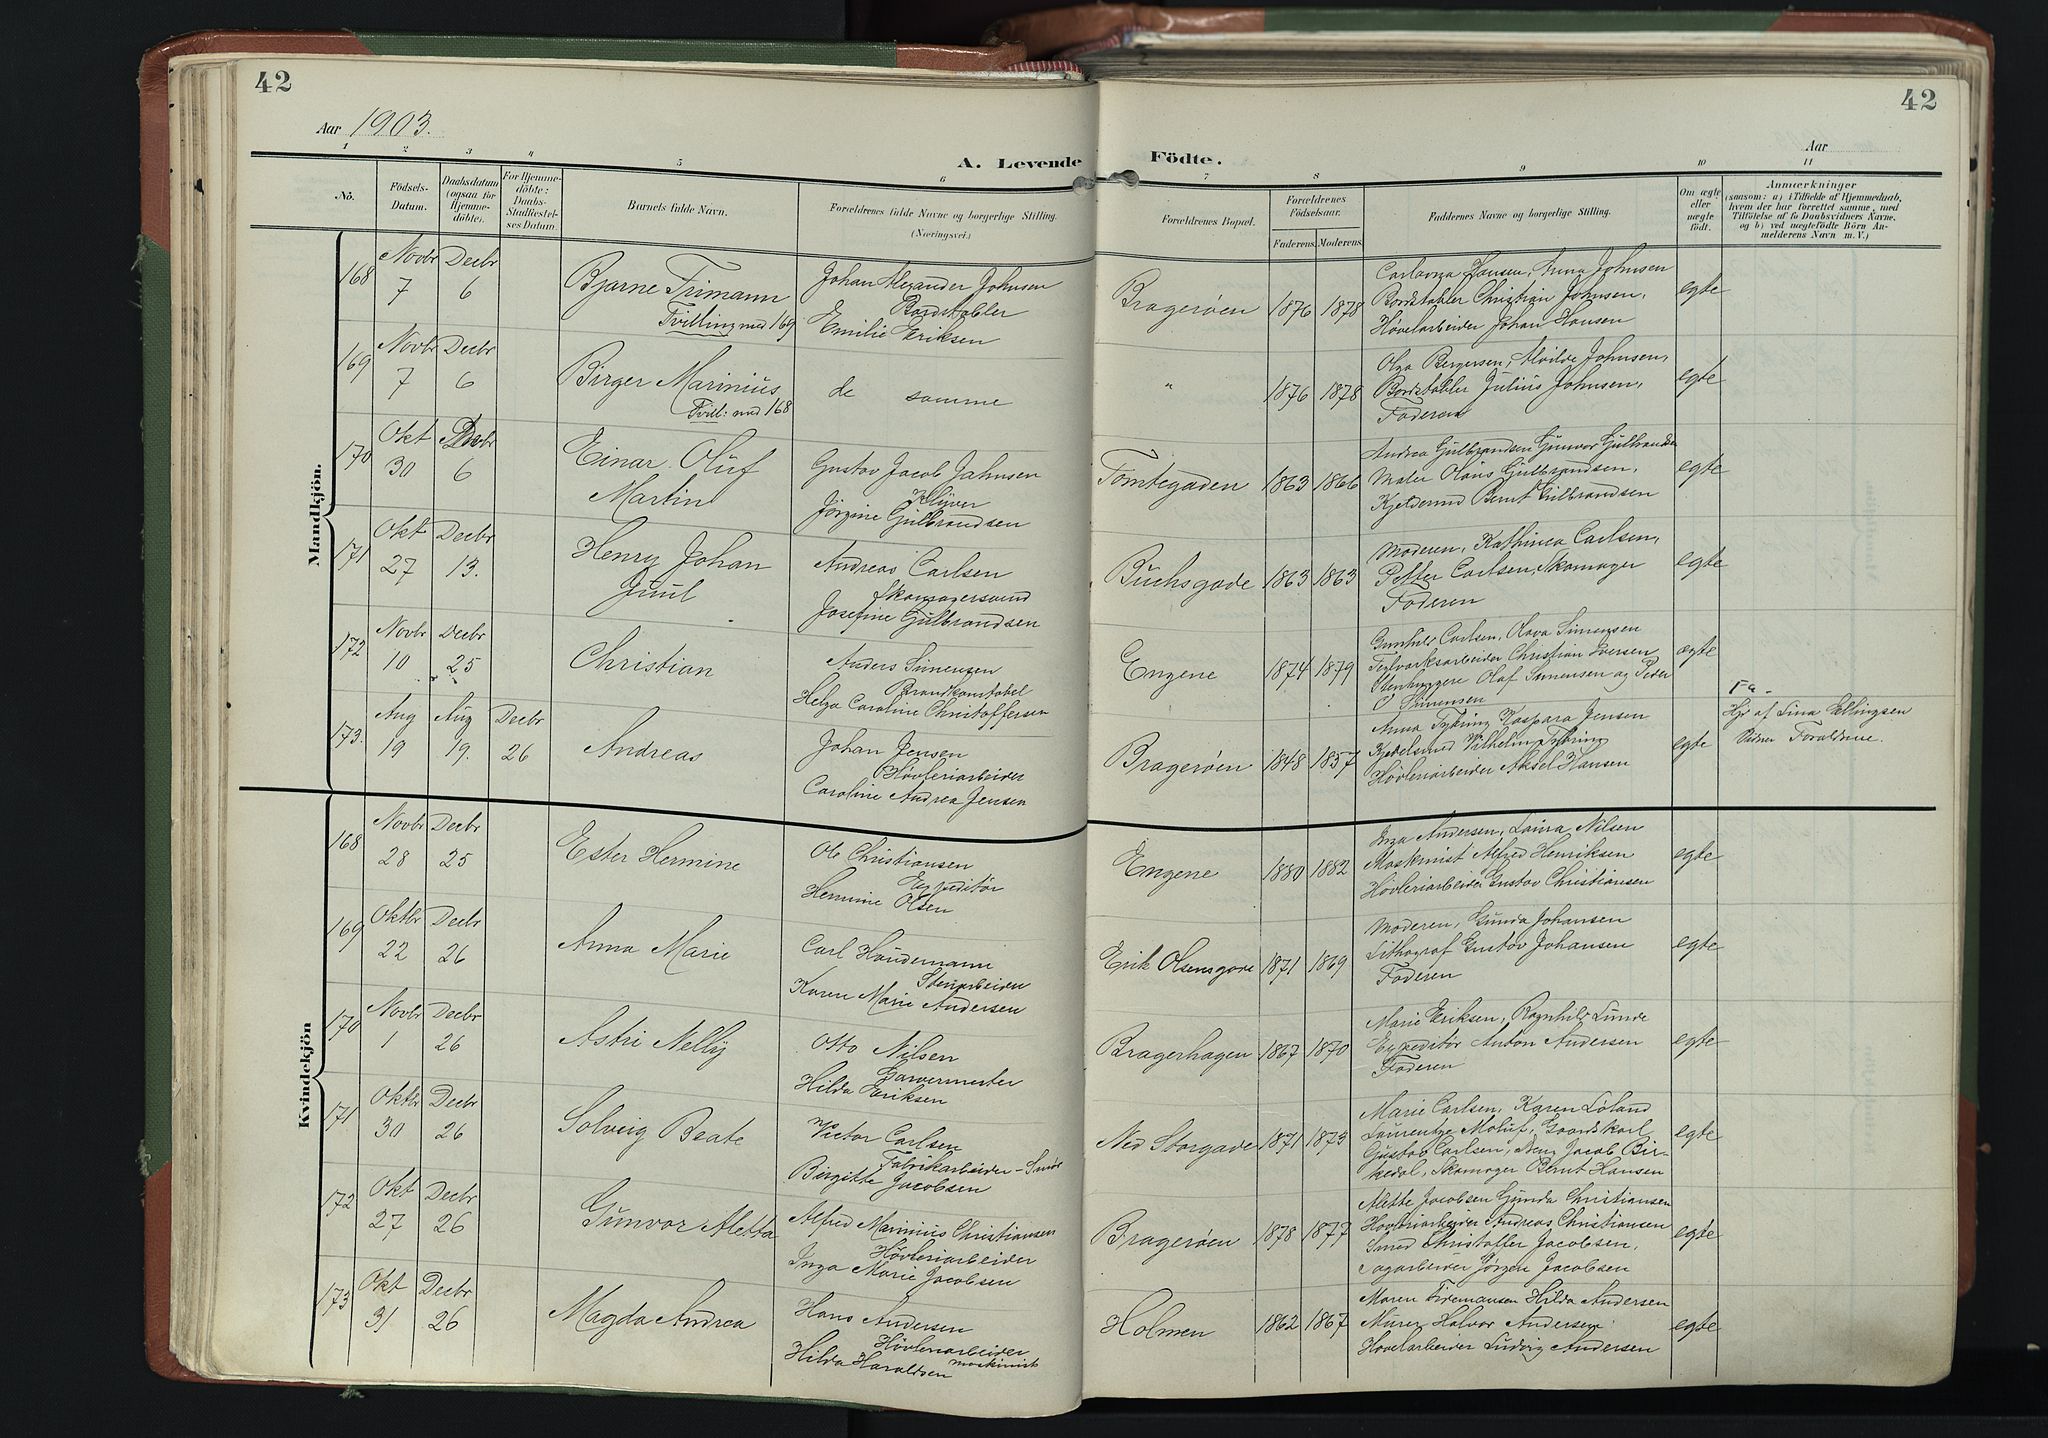 42
42
Aar 1903.
Aar
A. Levende Födte.
1 2 3 4 5 6 7 8 9 10 11
No.
Födsels-Datum.
Daabsdatum (ogsaa for Hjemme-döbte).
For Hjemme-döbte: Daabs-Stadfæstel-ses Datum.
Barnets fulde Navn.
Forældrenes fulde Navne og borgerlige Stilling.
(Næringsvei.)
Forældrenes Bopæl.
Forældrenes Födselsaar.
Faderens. Moderens.
Faddernes Navne og borgerlige Stilling.
Om ægte eller uægte födt.
Anmærkninger
(saasom: a) i Tilfælde af Hjemmedaab,
hvem der har forrettet samme, med
Tilföielse af to Daabsvidners Navne,
og b) ved uægtefödte Börn An-
melderens Navn m. V.)
Mandkjön.
168 Novbr 7 Decbr 6
Bjarne Trimann
Tvilling med 169
Johan Alexander Johnsen
Bordstabler
Emilie Eriksen
Bragerøen 1876 1878
Hansen, Anna Johnsen
Bordstabler Christian Johnsen,
Høvelarbeider Johan Hansen
egte
169 Novbr 7 Decbr 6
Birger Marinius
Tvill: med 168
de samme
" 1876 1878
Olga Bergersen, Alvilde Johnsen,
Bordstabler Julius Johnsen,
Faderen
egte
170 Okt 30 Decbr 6
Einar Oluf
Martin
Gustav Jacob Jahnsen
Jørgine Gulbrandsen
Tomtegaden 1863 1866
Andrea Gulbrandsen Gunvor Gulbrandsen
Maler Olaus Gulbrandsen,
Kjeldsmed Bernt Gulbrandsen
egte
171 Okt 27 Decbr 13.
Henry Johan
Juul
Andreas Carlsen
Skomagersvend
Josefine Gulbrandsen
Buchsgade 1863 1863
Moderen, Kathinca Carlsen,
Petter Carlsen, Skomager
Faderen
egte
172 Novbr 10 Decbr 25
Christian
Anders Simensen
Brandkonstabel
Helga Caroline Christoffersen
Engene 1874 1879
Gunhild Carlsen, Olava Simensen
Christian Iversen
Stenhuggere Olaf Simensen og Peder
Simensen
ægte
173. Aug 19 Aug 19. Decbr 26
Andreas
Johan Jensen
Høvleriarbeider
Caroline Andrea Jensen
Bragerøen 1848 1857
Anna Tyhring Kaspara Jensen
Kjedelsmed Vilhelm Tyhring
Høvleriarbeider Aksel Hansen
egte
Fa.
Hjd af Lina Ellingsen
Vidner Forældrene.
Kvindekjön
168 Novbr 28 Decbr 25
Ester Hermine
Ole Christiansen
Expeditør
Hermine Olsen
Engene 1880 1882
Inga Andersen, Laura Nilsen
Maskinist Alfred Henriksen
Høvleriarbeider Gustav Christiansen
egte
169 Oktbr 22 Decbr 26
Anna Marie
Carl Haudemann
Stenarbeider
Karen Marie Andersen
Erik Olsensgade 1871 1869
Moderen, Gunda Johansen
Lithograf Gustav Johansen
Faderen
egte
170 Novbr 1 Decbr 26
Astri Nelly
Otto Nilsen
Garvermester
Hilda Eriksen
Bragerhagen 1867 1870
Marie Eriksen, Ragnhild Lunde
Expeditør Anton Andersen
Faderen
egte
171 Oktbr 30 Decbr 26
Solveig Beate
Victor Carlsen
Fabrikarbeider - Smør
Birgitte Jacobsen
Ned Storgade 1871 1873
Marie Carlsen, Karen Løland
Laurentze Gaardskarl
Gustav Carlsen, Jacob Bir-
kedal, Skomager Bernt Hansen
egte
172 Okt 27 Decbr 26
Gunvor Aletta
Alfred Marinius Christiansen
Høvleriarbeider
Inga Marie Jacobsen
Bragerøen 1878 1877
Alette Jacobsen Gunda Christiansen
Høvleriarbeider Andreas Christiansen
Smed Christoffer Jacobsen,
Sagarbeider Jørgen Jacobsen
egte
173 Okt 31 Decbr 26
Magda Andrea
Hans Andersen
Høvleriarbeider
maskinist
Hilda Haraldsen
Holmen 1862 1867
Maren Hilda Andersen
Murer Halvor Andersen
Høvelarbeider Ludvig Andersen
egte